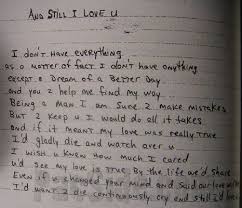 And Still I Love U
I don't have everything
as a matter of fact I don't have anything
except a Dream of a Better Day
and you 2 help me find my way
Being a man I am sure 2 make mistakes
But 2 keep u I would do all it takes
and if it meant my love was really true
I'd gladly die and watch over u
I wish u knew how much I cared
u'd see my love is true By the life we'd share
Even if u changed your mind and said our love
I'd want 2 die continuously cry and still I'd